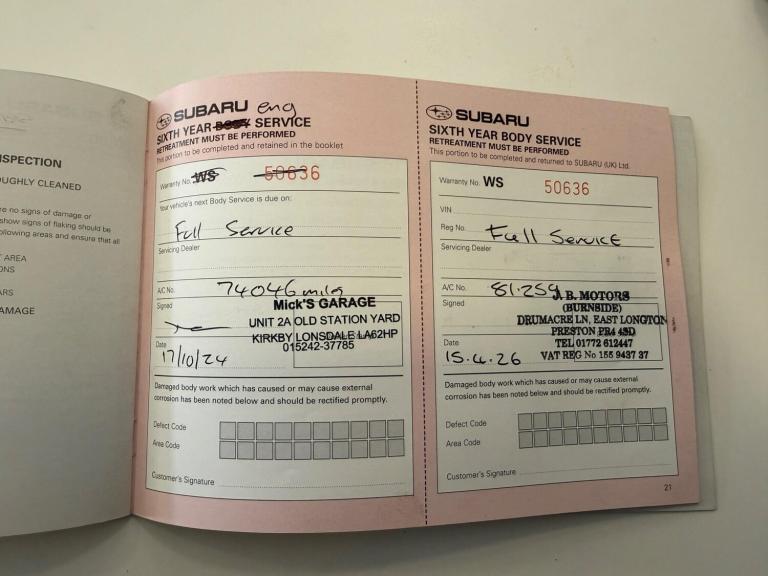 NSPECTION
OUGHLY CLEANED
re no signs of damage or
show signs of flaking should be
ollowing areas and ensure that all
T AREA
ONS
ARS
AMAGE
SUBARU eng
SIXTH YEAR BODY SERVICE
RETREATMENT MUST BE PERFORMED
This portion to be completed and retained in the booklet
Warranty No. WS 50636
Your vehicle's next Body Service is due on:
Full Service
Servicing Dealer
A/C No. 74046 miles
Signed
Mick'S GARAGE
UNIT 2A OLD STATION YARD
KIRKBY LONSDALE LA62HP
015242-37785
Date
17/10/24
Damaged body work which has caused or may cause external
corrosion has been noted below and should be rectified promptly.
Defect Code
Area Code
Customer's Signature
SUBARU
SIXTH YEAR BODY SERVICE
RETREATMENT MUST BE PERFORMED
This portion to be completed and returned to SUBARU (UK) Ltd.
Warranty No. WS 50636
VIN
Reg No. Full Service
Servicing Dealer
A/C No. 81.259
Signed
J. B. MOTORS
(BURNSIDE)
DRUMACRE LN, EAST LONGTON
PRESTON PR4 4SD
TEL 01772 612447
VAT REG No 155 9437 37
Date
15.4.26
Damaged body work which has caused or may cause external
corrosion has been noted below and should be rectified promptly.
Defect Code
Area Code
Customer's Signature
21